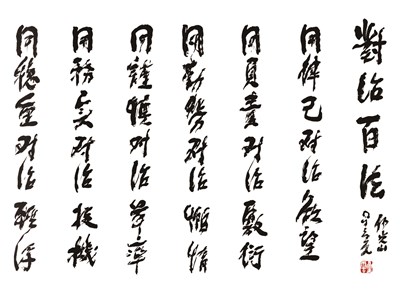 對治百法
佛光山
星雲
用律己對治欲望
用負責對治敷衍
用勤勞對治懶惰
用謹慎對治草率
用務實對治投機
用穩重對治輕浮